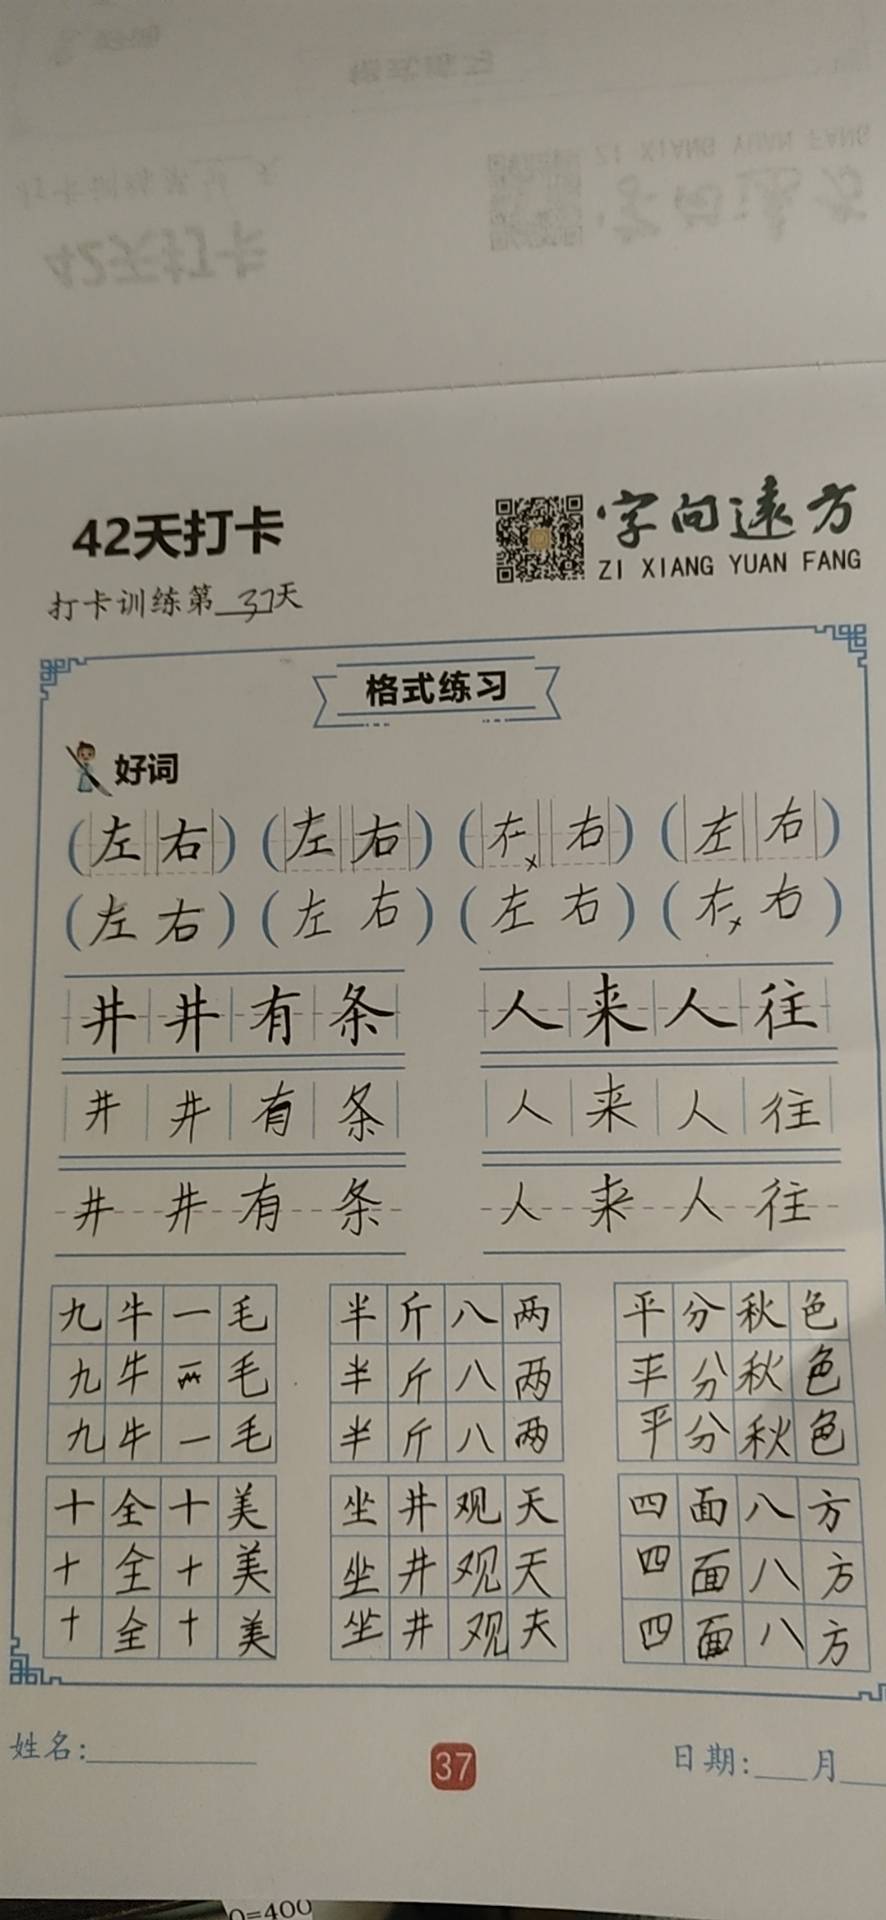 42天打卡
字向遠方
ZI XIANG YUAN FANG
打卡训练第37天
格式练习
好词
(左右)(左右)(在右)(左右)
(左右)(左右)(左右)(右)
井井有条 人来人往
井井有条 人来人往
井井有条 人来人往
九牛一毛 半斤八两 平分秋色
九牛毛 半斤八两 平分秋色
九牛一毛 半斤八两 平分秋色
十全十美 坐井观天 四面八方
十全十美 坐井观天 四面八方
十全十美 坐井观夫 四面八方
姓名: 37 日期: 月
0=400